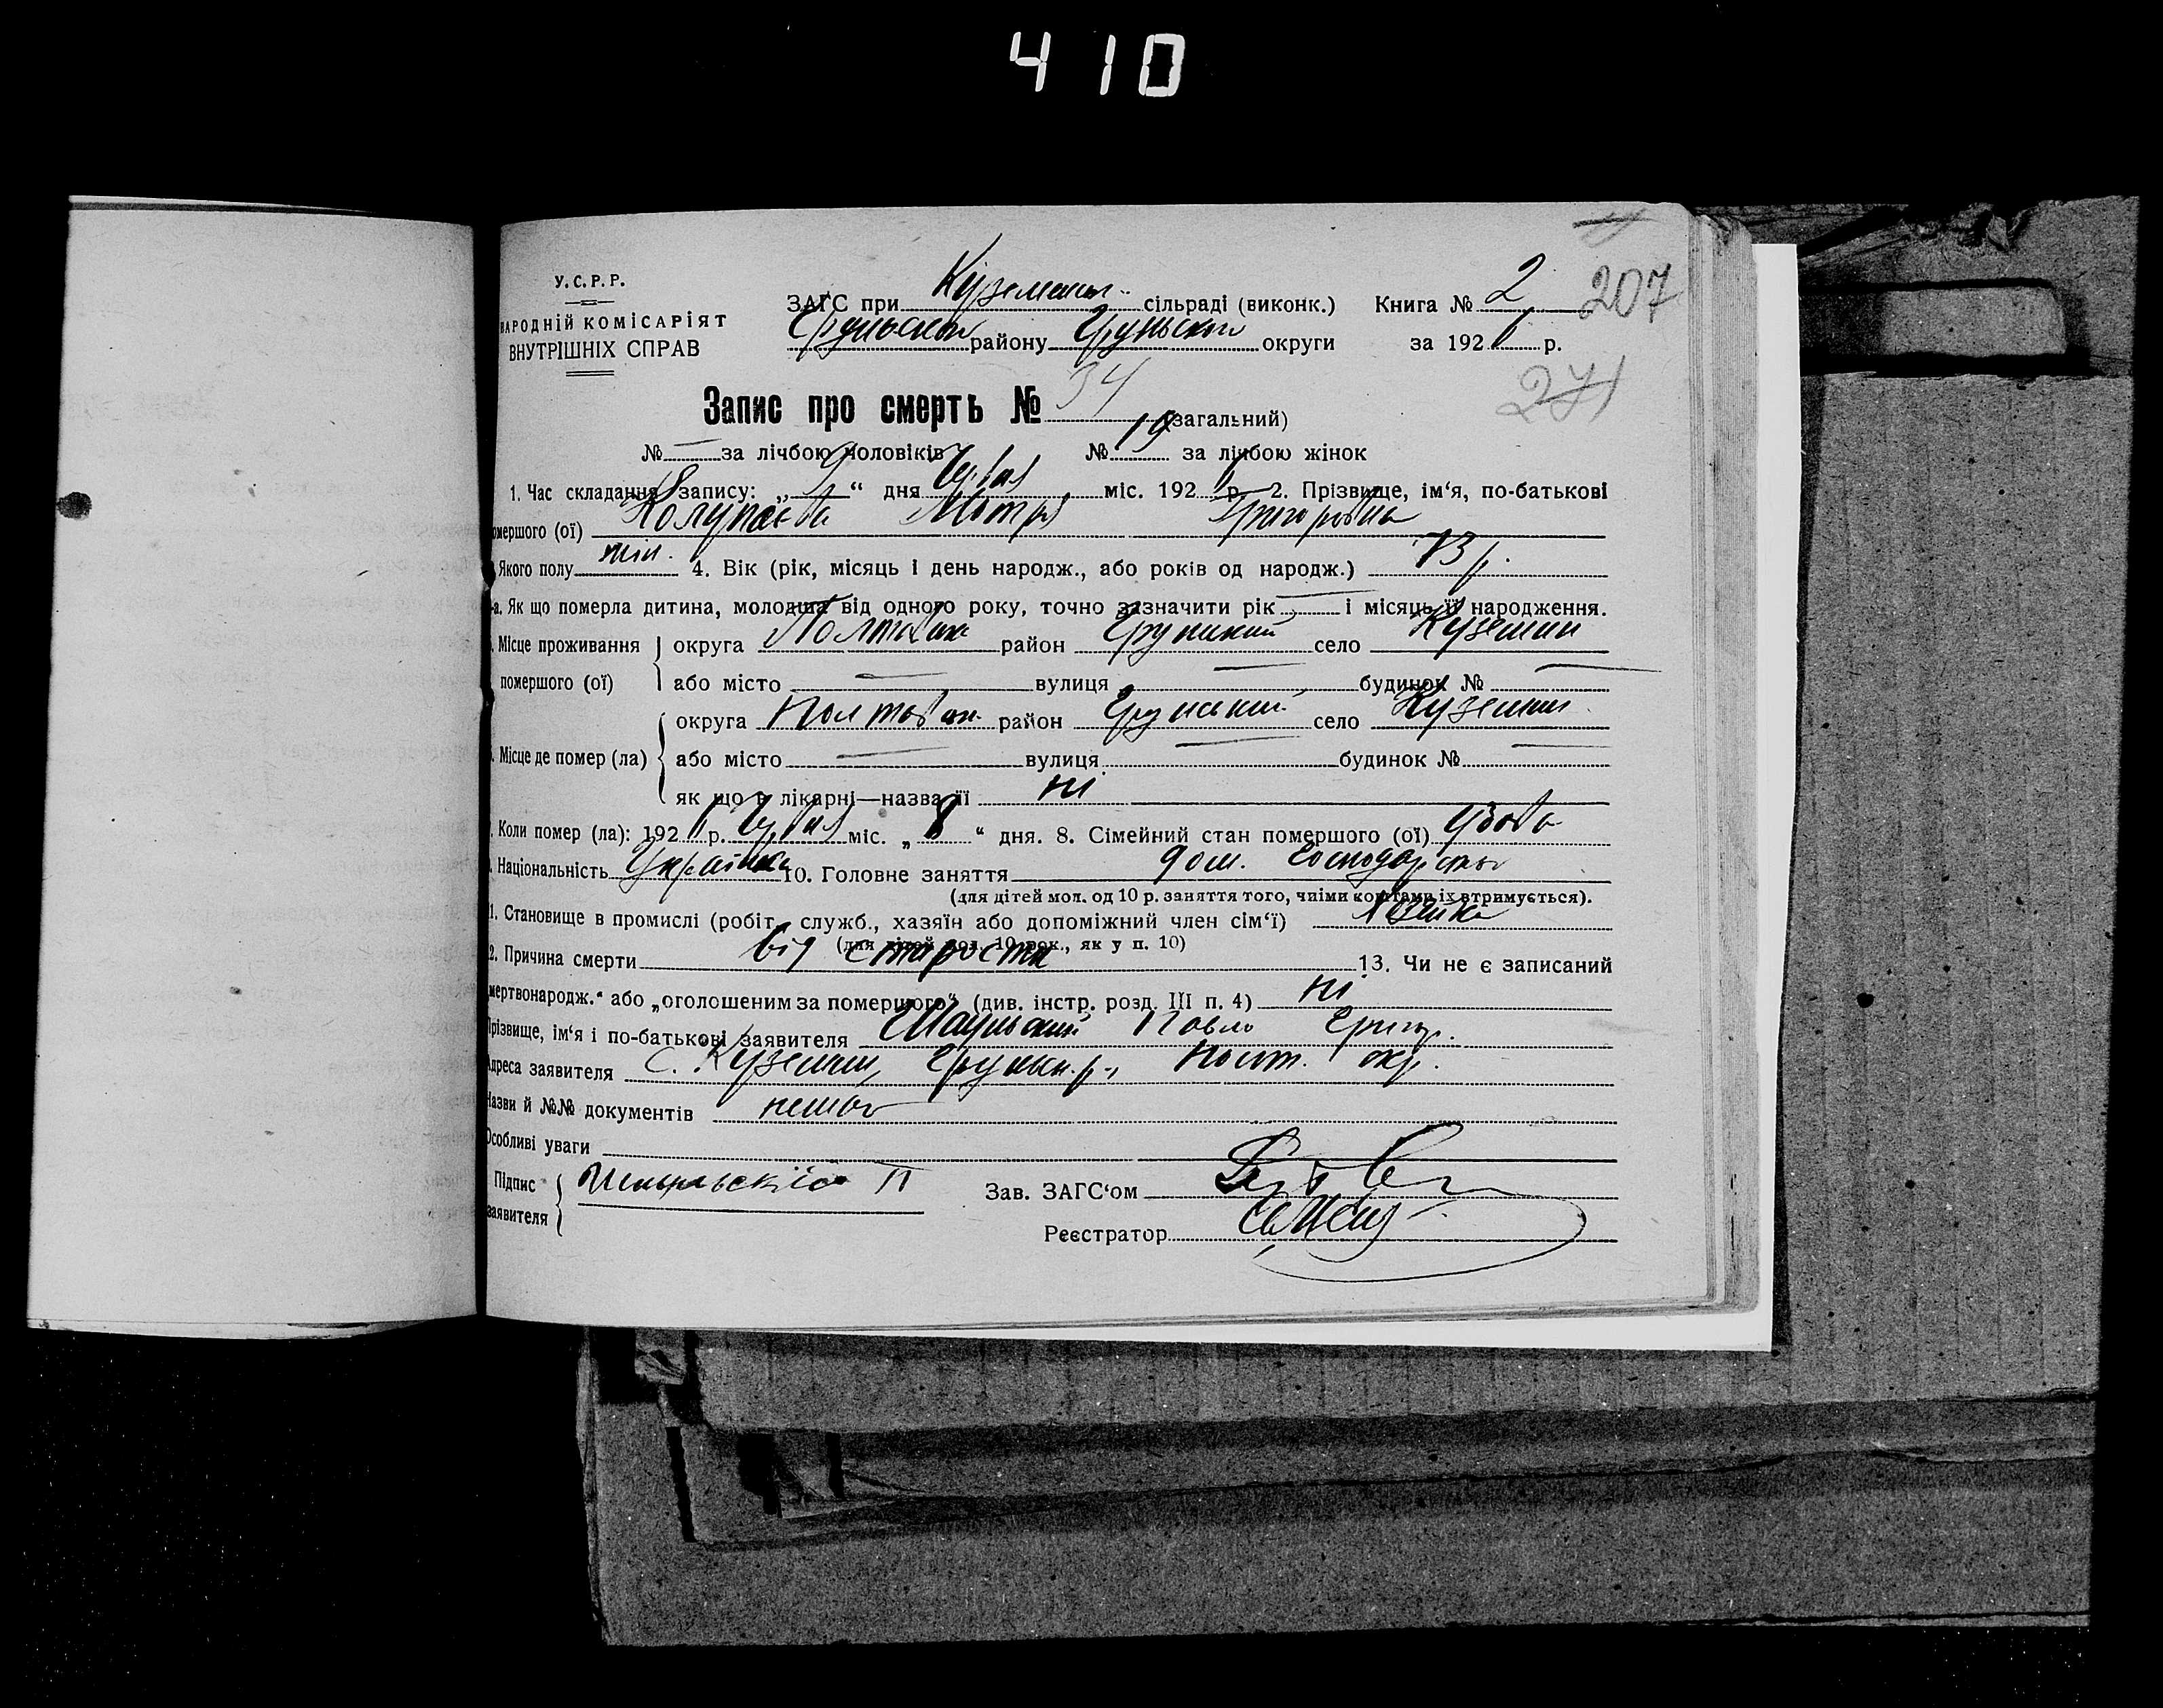 410
У.С.Р.Р.
НАРОДНІЙ КОМІСАРІЯТ
ВНУТРІШНІХ СПРАВ
ЗАГС при Куземській сільраді (виконк.) Книга № 2 207
району округи за 192 р.
271
Запис про смерть № 34 (загальний)
№ — за лічбою чоловіків № 19 за лічбою жінок
1. Час складання запису: „9“ дня міс. 192 р. 2. Прізвище, ім‘я, по-батькові
помершого (ої) Колупаєва Мотря Григоровна
Якого полу жін. 4. Вік (рік, місяць і день народж., або років од народж.) 73 р.
-а. Як що померла дитина, молодша від одного року, точно зазначити рік — і місяць її народження.
Місце проживання округа Полтавська район Грунський село Куземин
помершого (ої) або місто — вулиця — будинок № —
округа Полтавськ. район Грунський село Куземин
Місце де помер (ла) або місто — вулиця — будинок № —
як що в лікарні—назва її ні
Коли помер (ла): 192 р. міс. „8“ дня. 8. Сімейний стан помершого (ої) удова
Національність Українка 10. Головне заняття дом. господарство
(для дітей мол. од 10 р. заняття того, чиїми коштами їх втримується).
1. Становище в промислі (робіт., служб., хазяїн або допоміжний член сім‘ї)
(для дітей мол. 10 рок., як у п. 10)
2. Причина смерти від старости 13. Чи не є записаний
„мертвонародж.“ або „оголошеним за помершого“ (див. інстр. розд. III п. 4) ні
Прізвище, ім‘я і по-батькові заявителя Павло Григор.
Адреса заявителя с. Куземин, Грунськ. р., Полт. окр.
Назви й №№ документів нема
Особливі уваги
Підпис
заявителя П
Зав. ЗАГС‘ом
Реєстратор